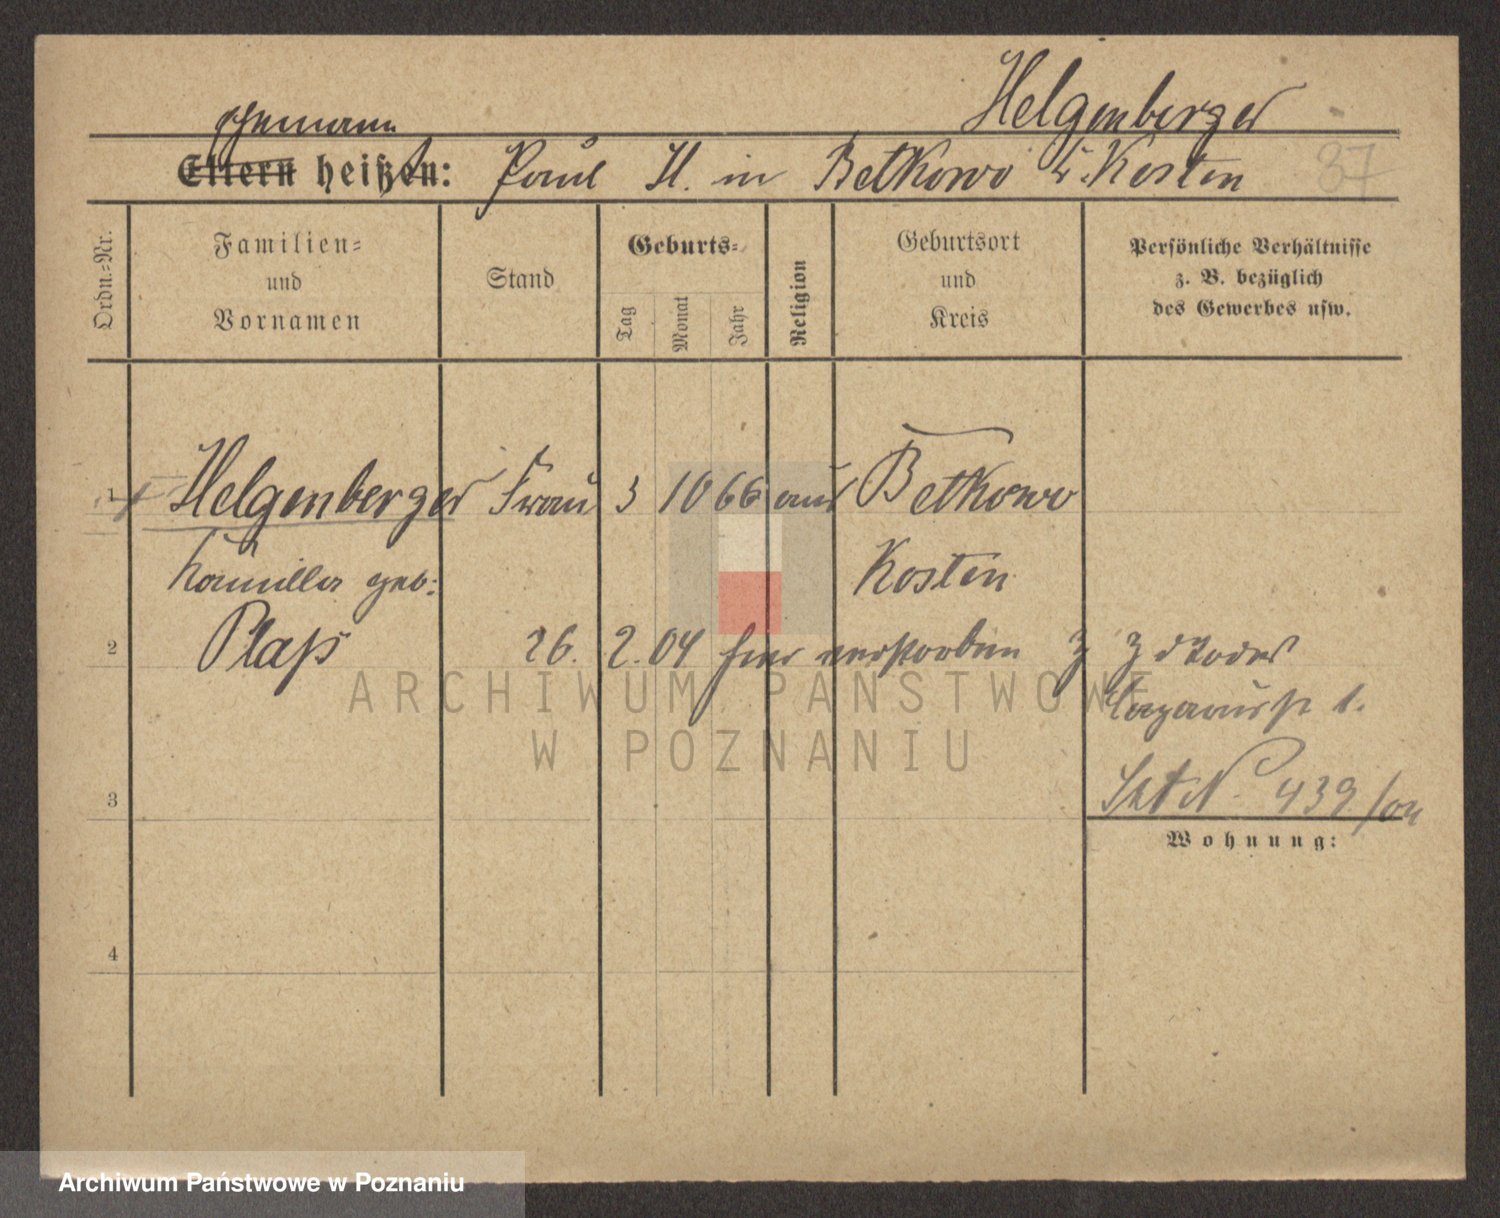 Helgenberger
Ehemann
Eltern heißen: Paul H. in Betkowo K. Kosten
37
Ordn.-Nr.
Familien-
und
Vornamen
Stand
Geburts-
Tag
Monat
Jahr
Religion
Geburtsort
und
Kreis
Persönliche Verhältnisse
z. B. bezüglich
des Gewerbes usw.
1 Helgenberger Frau 3 10 66 aus Betkowo
Kamilla geb. Kosten
2 Plaß 26. 2. 04 hier verstorben Z Z d Todes
Lazarusstr 1.
439/04
3
Wohnung:
4
ARCHIWUM PAŃSTWOWE
W POZNANIU
Archiwum Państwowe w Poznaniu